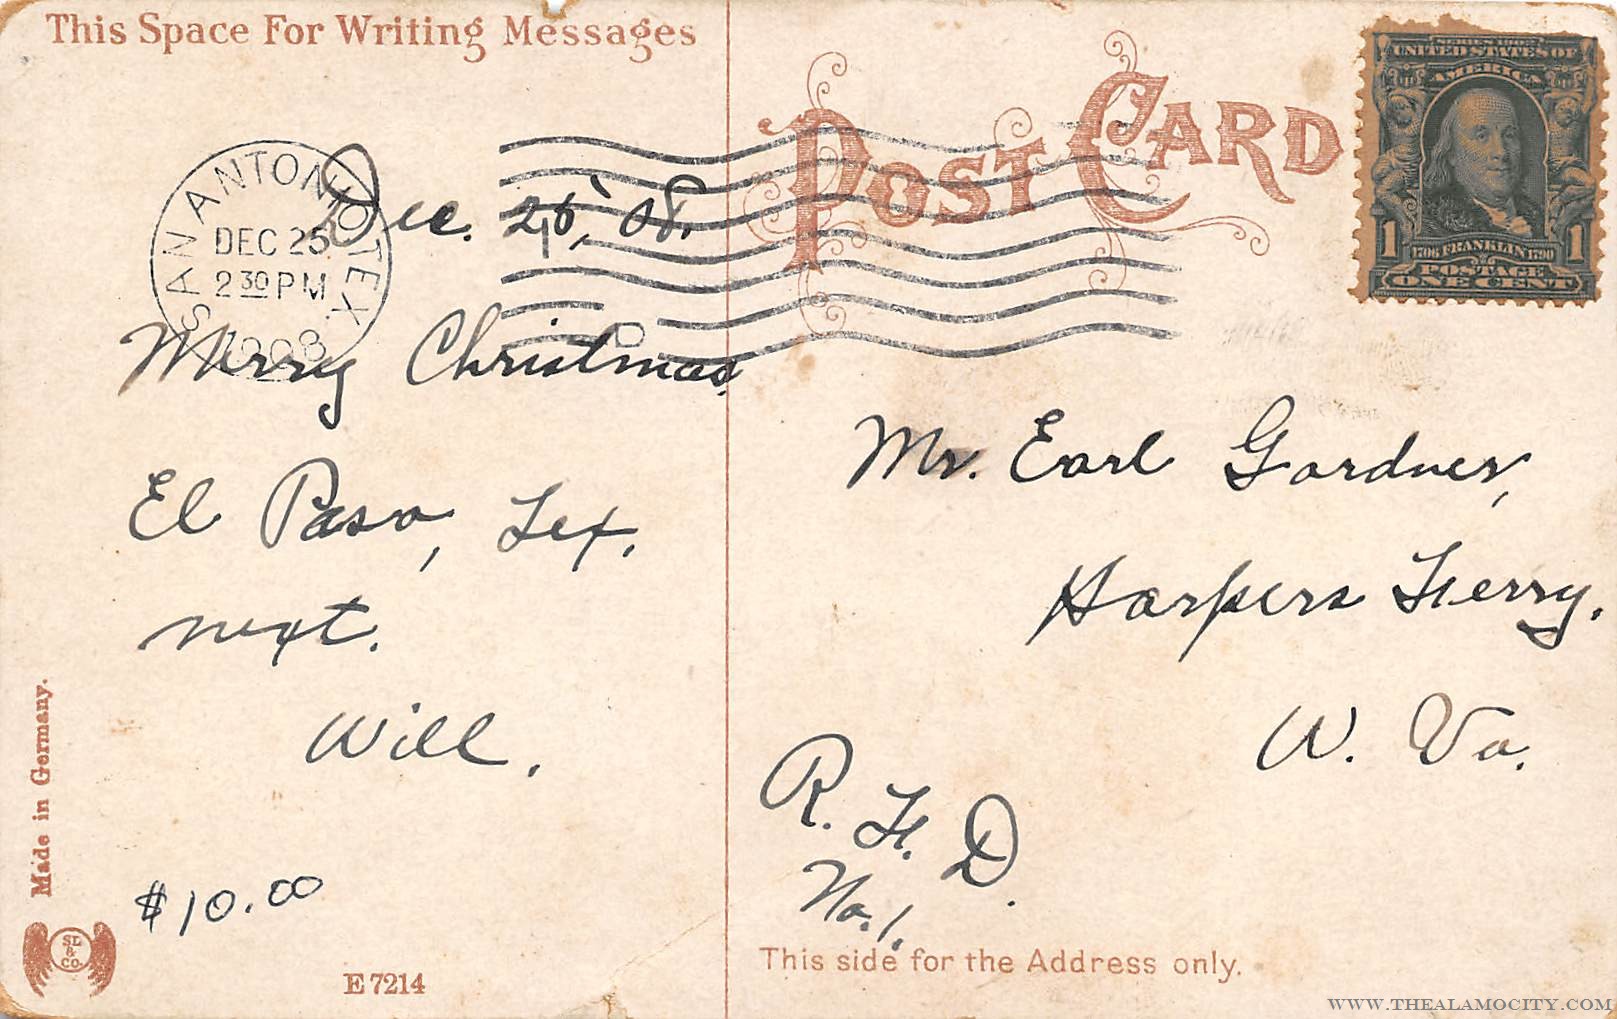 This Space For Writing Messages
POST CARD
SERIES 1902
UNITED STATES OF
AMERICA
1 1706 FRANKLIN 1790 1
POSTAGE
ONE CENT
SAN ANTONIO, TEX
DEC 25
2 30 PM
1908
Dec. 25, '08.
Merry Christmas,
El Paso, Tex,
next.
Will,
$10.00
Mr. Earl Gardner,
Harpers Ferry,
W. Va.
R. F. D.
No. 1.
Made in Germany.
SL
&
CO.
E 7214
This side for the Address only.
WWW.THEALAMOCITY.COM